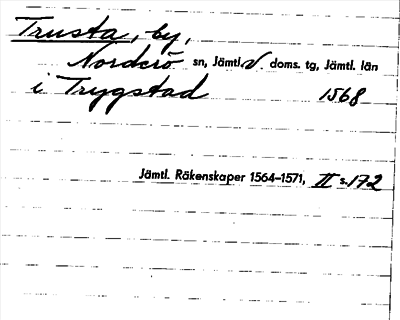 Trusta, by,
Norderö sn, Jämtl. V. doms. tg, Jämtl. län
i Trygstad 1568
Jämtl. Räkenskaper 1564–1571, II s. 172